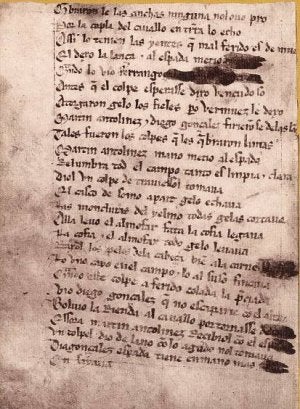 Crebaron le las çinchas ninguna nol ouo pro
Por la copla del cauallo en tirra lo echo
Assi lo tenien las yentes que mal ferido es de muert
El dexo la lança & al espada metio
Quando lo vio ferrangoçalez
Antes que el colpe esperasse dixo vençudo so
Atorgaron gelo los fieles pero vermuez le dexo
Martin antolinez & diego gonçalez firieron se delas
Tales fueron los colpes que les quebraron
Martin antolinez mano metio al espada
Relumbra tod el campo tanto es limpia & clara
Diol vn colpe de trauiessol tomaua
El casco de somo apart gelo echaua
Las moncluras del yelmo todas gelas cortaua
Alla leuo el almofar fata la cofia legaua
La cofia & el almofar todo gelo leuaua
los pelos dela cabeça bien ala carne
Lo vno cayo en el campo & lo al suso fincaua
Quando este colpe a ferido colada la preçiada
Vio diego gonçalez que no escaparie con el alma
Boluio la rienda al cauallo por tornasse
Essora martin antolinez reçibiol con el espada
Vn colpel dio de lano con lo agudo nol tomaua
Diagonçalez espada tiene en mano mas